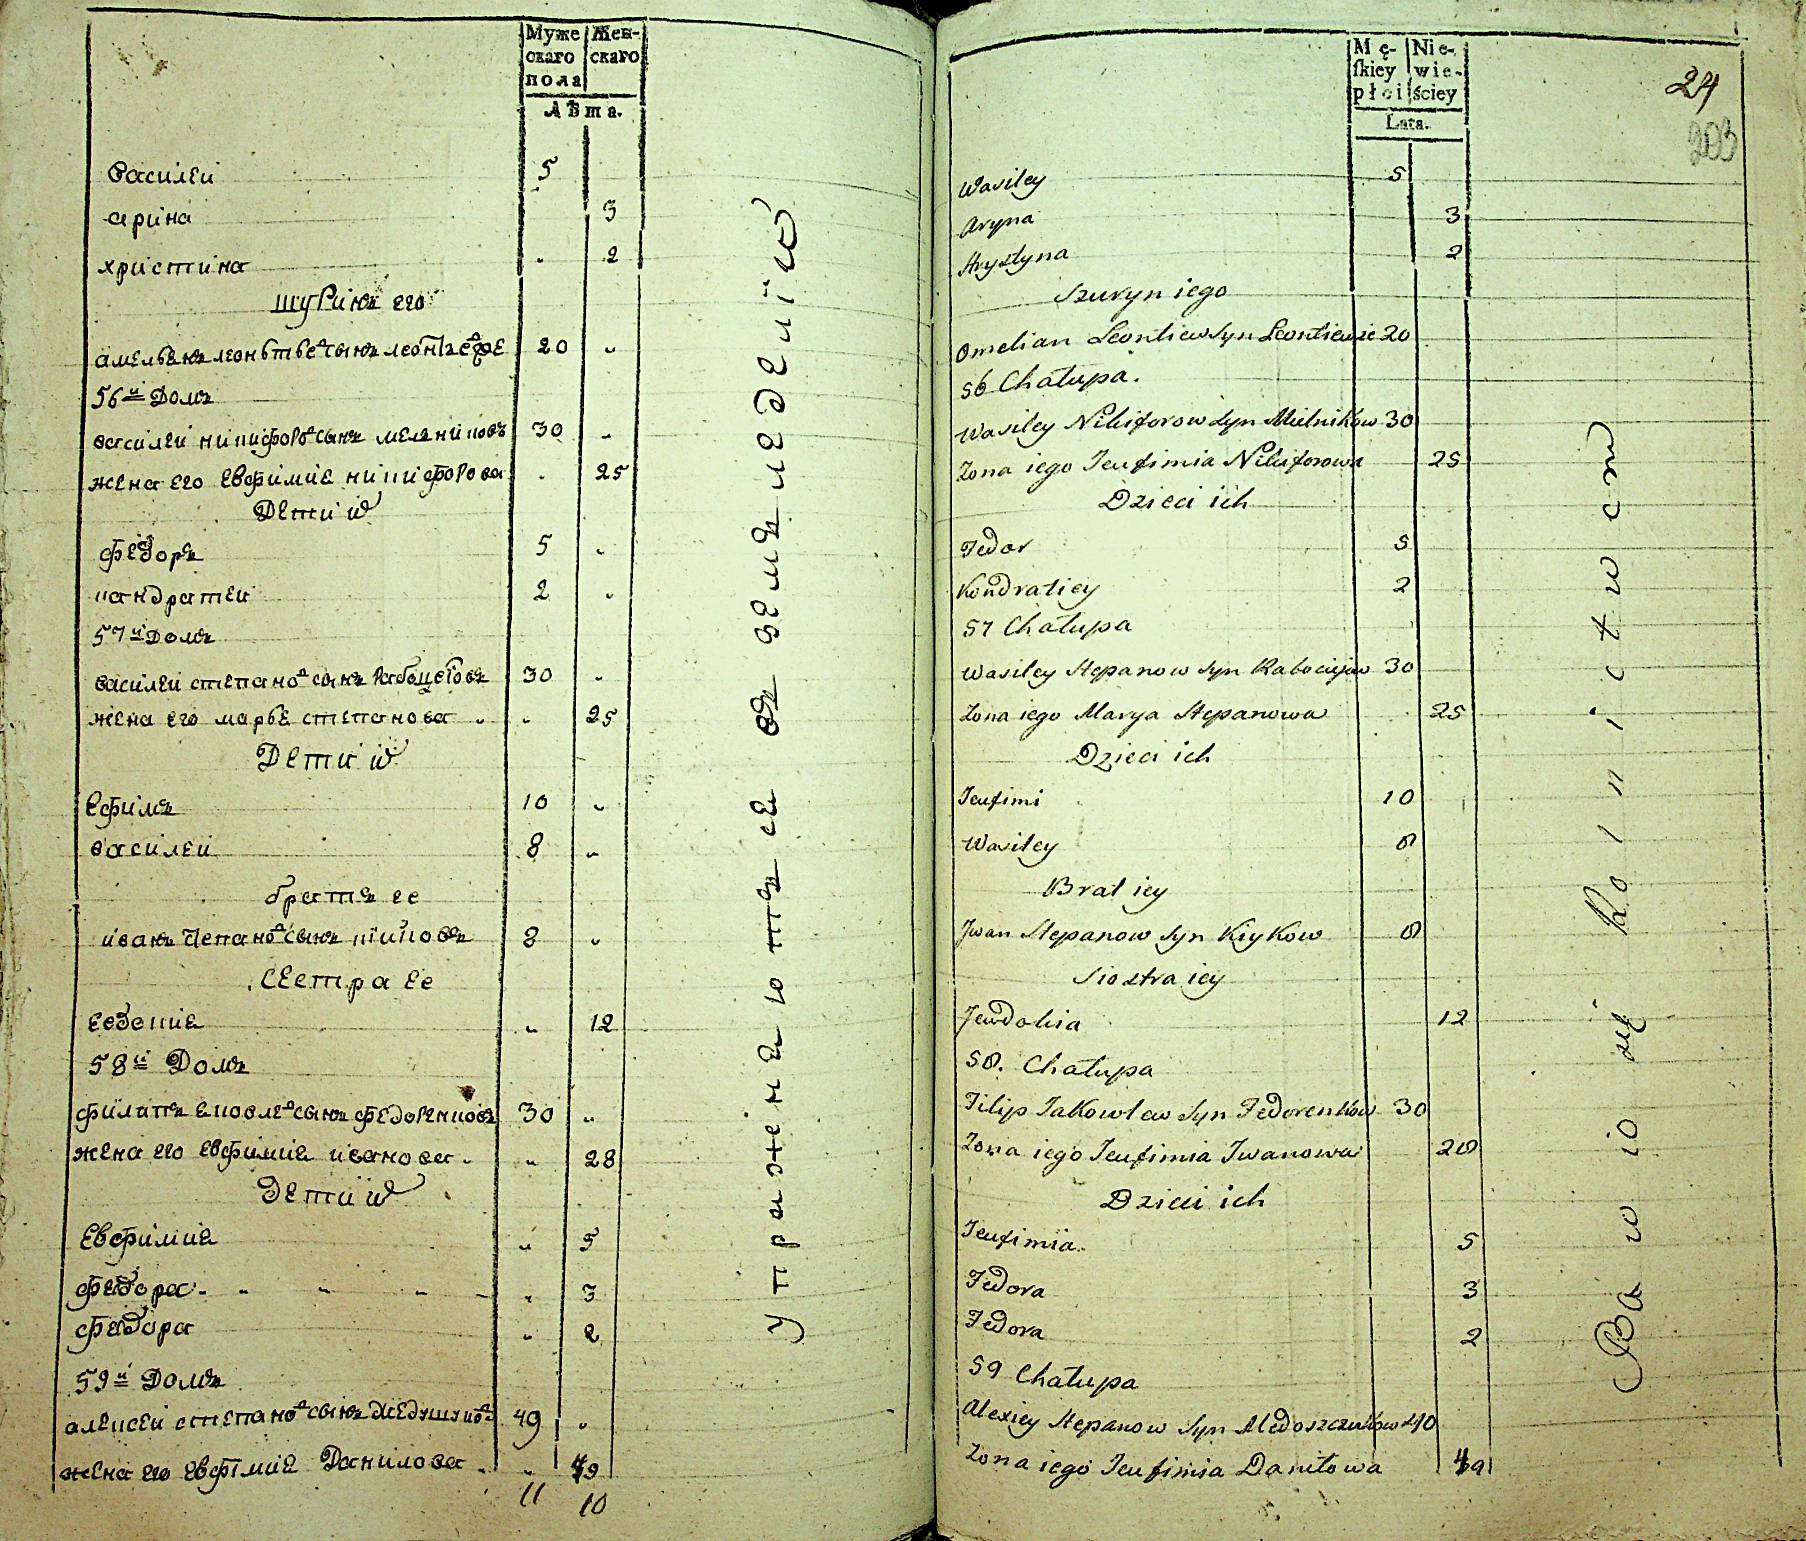 Муже Жен-
скаго скаго
пола
Лѣта.
василеи 5
арина 3
христина 2
шуринъ его
амельѧнъ леонтьевъ сынъ 20
56й Домъ
василеи никифоровъ сынъ мелниковъ 30
жена его евфимиѧ никифорова 25
Дети их
федоръ 5
кандратеи 2
57й Домъ
василеи степановъ сынъ 30
жена его марьѧ степанова 25
Дети их
ефимъ 10
василеи 8
братъ ее
иванъ степановъ сынъ кийковъ 8
сестра ее
евдокиѧ 12
58й Домъ
филипъ ѧковлевъ сынъ федоренковъ 30
жена его евфимиѧ иванова 28
Дети их
Евфимиѧ 5
федора 3
федора 2
59й Домъ
алексеи степановъ сынъ 49
жена его евфимиѧ Данилова 49
11 10
упражнѧютъсѧ въ земледелии
Mę- Nie-
ſkiey wie-
płci ściey
Lata.
24
203
Wasiley 5
Aryna 3
Hrystyna 2
Szuryn iego
Omelian Leontiew syn Leontiewie 20
56 Chałupa.
Wasiley Nikiforow syn Mielnikow 30
Żona iego Jeufimia Nikiforowa 25
Dzieci ich
Fedor 5
Kondratiey 2
57 Chałupa
Wasiley Stepanow syn 30
Żona iego Marya Stepanowa 25
Dzieci ich
Jeufimi 10
Wasiley 8
Brat iey
Jwan Stepanow syn Kiykow 8
Siostra iey
Jewdokia 12
58. Chałupa
Filip Jakowlew syn Fedorenkow 30
Żona iego Jeufimia Jwanowa 28
Dzieci ich
Jeufimia 5
Fedora 3
Fedora 2
59 Chałupa
Alexiey Stepanow syn 40
Żona iego Jeufimia Daniłowa 49
Bawio się Rolnictwem